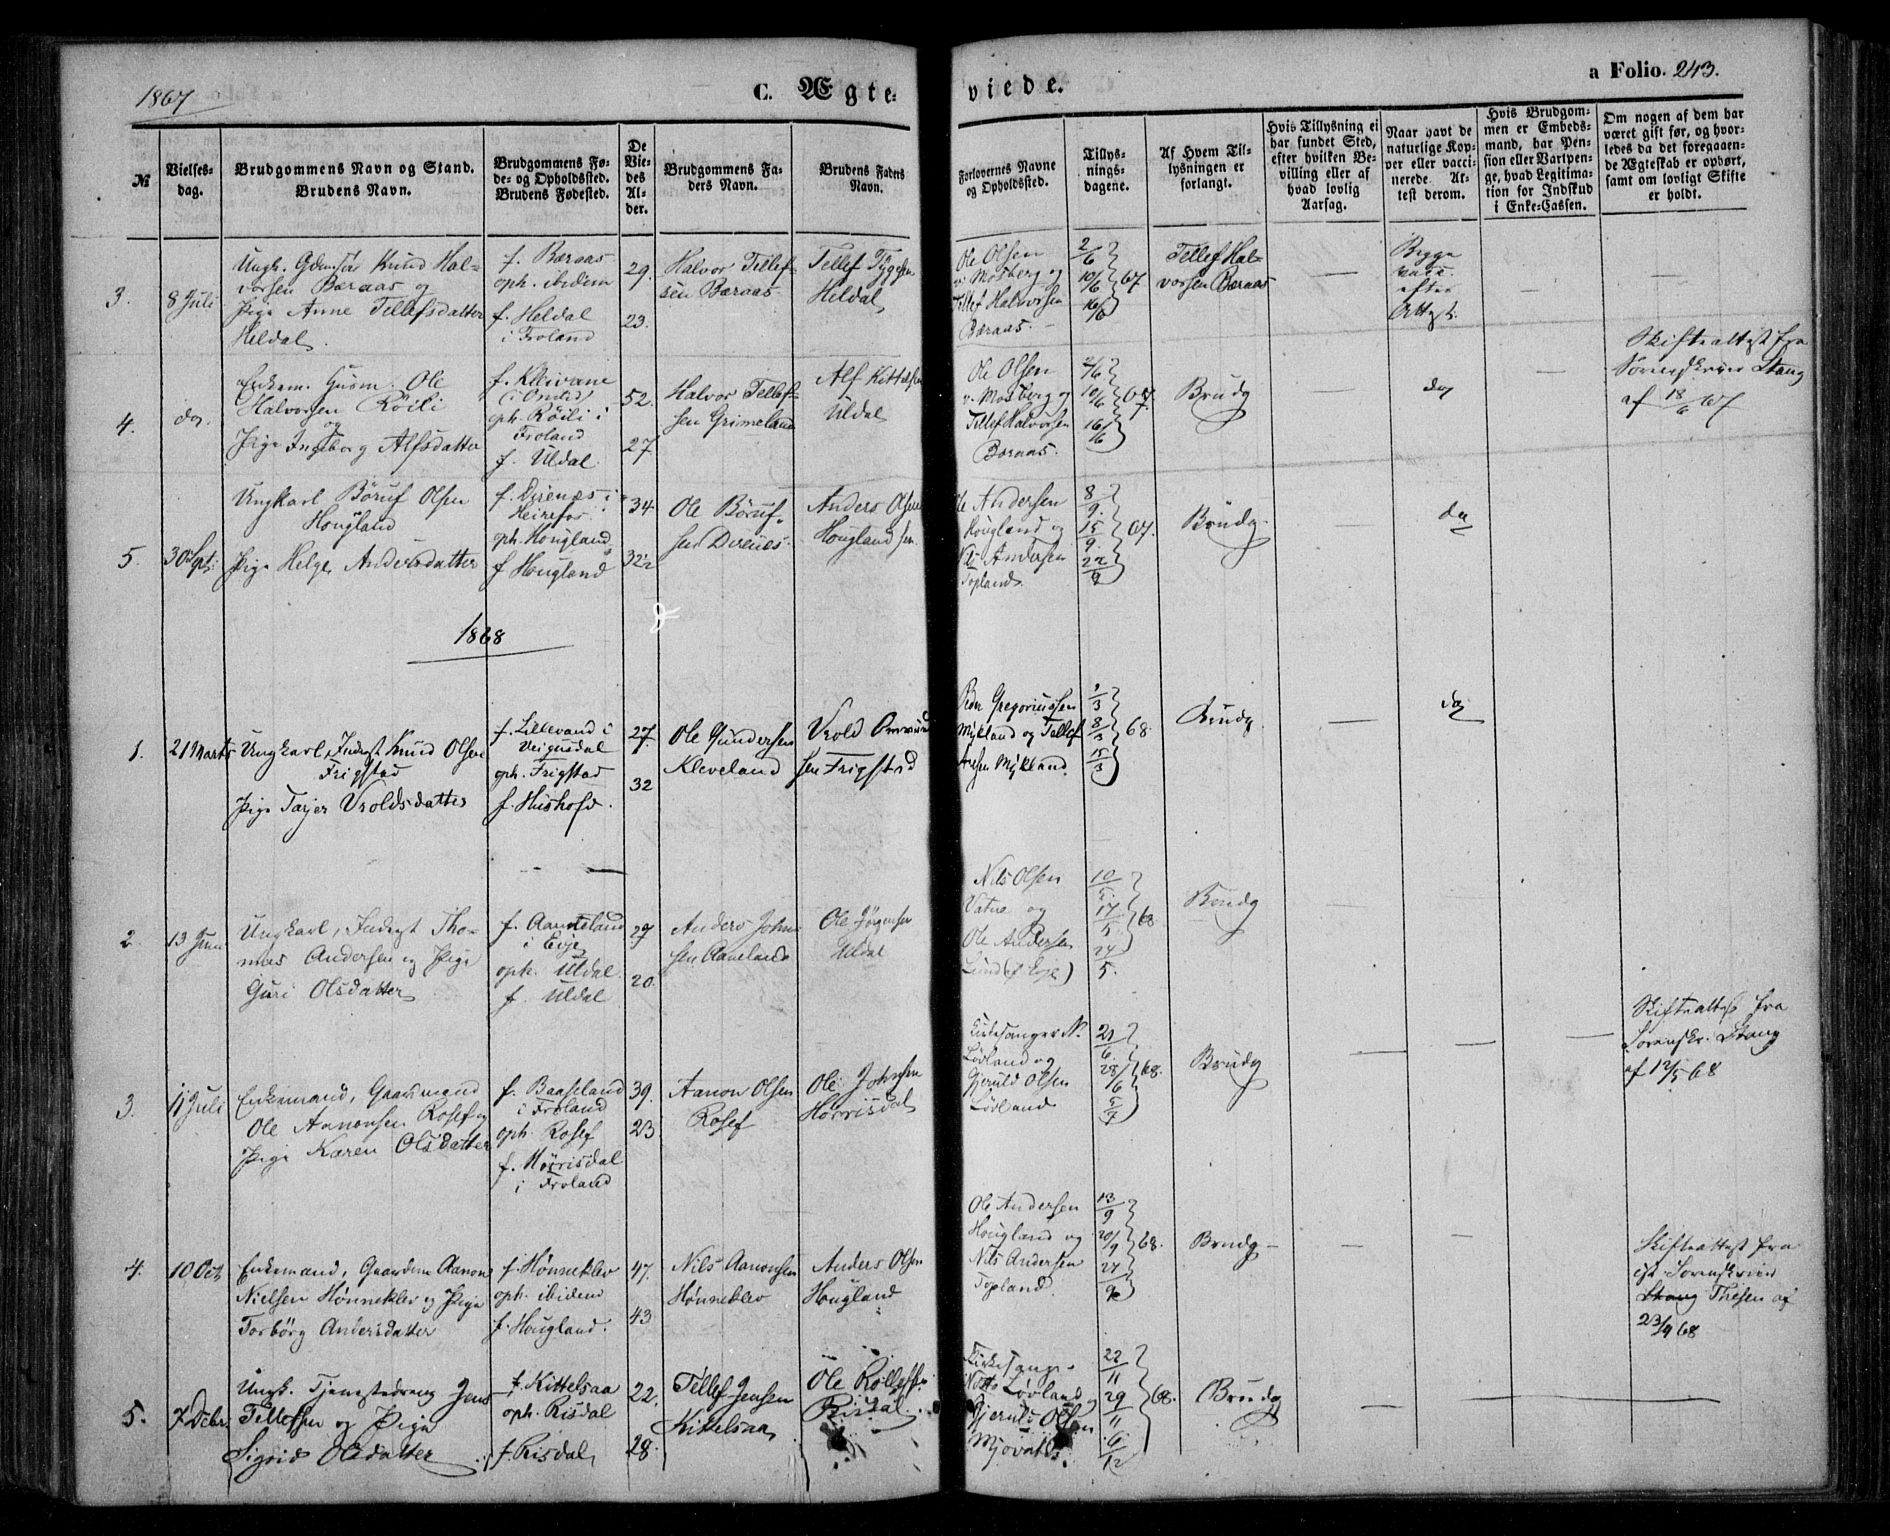 1867
C. Ægte-
viede.
a Folio. 243.
№
Vielses-
dag.
Brudgommens Navn og Stand.
Brudens Navn.
Brudgommens Fø-
de- og Opholdssted.
Brudens Fødested.
De
Vie-
des
Al-
der.
Brudgommens Fa-
ders Navn.
Brudens Faders
Navn.
Forlovernes Navne
og Opholdssted.
Tillys-
nings-
dagene.
Af Hvem Til-
lysningen er
forlangt.
Hvis Tillysning ei
har fundet Sted,
efter hvilken Be-
villing eller af
hvad lovlig
Aarsag.
Naar havt de
naturlige Kop-
per eller vacci-
nerede. At-
test derom.
Hvis Brudgom-
men er Embeds-
mand, har Pen-
sion eller Vartpen-
ge, hvad Legitima-
tion for Indskud
i Enke-Cassen.
Om nogen af dem har
været gift før, og hvor-
ledes da det foregaaen-
de Ægteskab er ophørt,
samt om lovligt Skifte
er holdt.
3.
8 Juli
Ungk. Gdmsøn Knud Hal-
vorsen Bæraas og
Pige Anne Tellefsdatter
Heldal.
f. Bæraas
oph. ibidem
f. Heldal
i Froland
29.
23.
Halvor Tellef-
sen Bæraas
Tellef Tygesen
Heldal
Ole Olsen
v. Mosberg og
Tellef Halvorsen
Bæraas.
2/6
10/6 67
16/6
Tellef Hal-
vorsen Bæraas
Begge
vacc.
efter
Attest.
4.
do.
Enkem. Husm. Ole
Halvorsen Röili
og
Pige Ingeborg Alfsdatter
f. Kleivane
i Omlid
oph. Röili i
Froland
f. Uldal
52.
27
Halvor Tellef-
sen Grimeland
Alf Kittelsen
Uldal
Ole Olsen
v. Mosberg og
Tellef Halvorsen
Bæraas.
2/6
10/6 67.
16/6
Brudg
do
Skifteattest fra
Sorenskriver Stang
af 18/6 67
5.
30 Spt:
Ungkarl Böruf Olsen
Hougland
Pige Helge Andersdatter
f. Direnes i
Heirefos
oph. Hougland
f Hougland
34.
32½
Ole Böruf-
sen Direnes.
Anders Olsen
Hougland sen.
Ole Andersen
Hougland og
Nils Andersen
Topland.
8/9.
15/9. 67.
22/9
Brudg.
do
1868
1.
21 Marts
Ungkarl, Inderst Knud Olsen
Frigstad
Pige Tarjer Vroldsdatter
f. Lillevand i
Veigusdal
oph. Frigstad
f Hushofd.
27.
32
Ole Gundersen
Kleveland
Vrold Omund-
sen Frigstad
Peder Gregoriussen
Mykland og Tellef
Aresen Mykland.
1/3
8/3 68
15/3
Brudg.
do
2.
13 Juni
Ungkarl, Inderst Tho-
mas Andersen og Pige
Guri Olsdatter
f. Aaneland
i Evje
oph. Uldal.
f. Uldal
27
20
Anders John-
sen Aaneland
Ole Jörgensen
Uldal
Nils Olsen
Vatne og
Ole Andersen
Lund (i Evje)
10/5.
17/5. 68
24/5.
Brudg
3.
11 Juli
Enkemand, Gaardmand
Ole Aanonsen Rosef og
Pige Karen Olsdatter
f. Baaseland
i Froland
oph. Rosef
f. Hörrisdal
i Froland
39.
23
Aanon Olsen
Rosef
Ole Johnsen
Hörrisdal
Kirkesanger N.
Lövland og
Gjeruld Olsen
Lövland
21/6.
28/6 68.
5/7
Brudg
Skifteattest fra
Sorenskr. Stang
af 12/5 68
4.
10 Oct.
Enkemand, Gaardm Aanon
Nielsen Hönneklev og Pige
Torbörg Andersdatter
f. Hönneklev
oph. ibidem
f. Hougland.
47.
43
Nils Aanonsen
Hönneklev
Anders Olsen
Hougland
Ole Andersen
Hougland og
Nils Andersen
Topland.
13/9
20/9 68.
27/9
Brudg
Skifteattest fra
cst. Sorenskriver
Stang Thesen af
23/9 68
5.
7 Debr.
Ungk. Tjenestedreng Jens
Tellefsen og Pige
Sigrid Olsdatter
f. Kittelsaa
oph. Risdal
f. Risdal
22.
28.
Tellef Jensen
Kittelsaa
Ole Rollefsen
Risdal
Kirkesange-
Lövland
Gjeruld Olsen
Mjovatn.
22/11
29/11 68.
6/12
Brudg